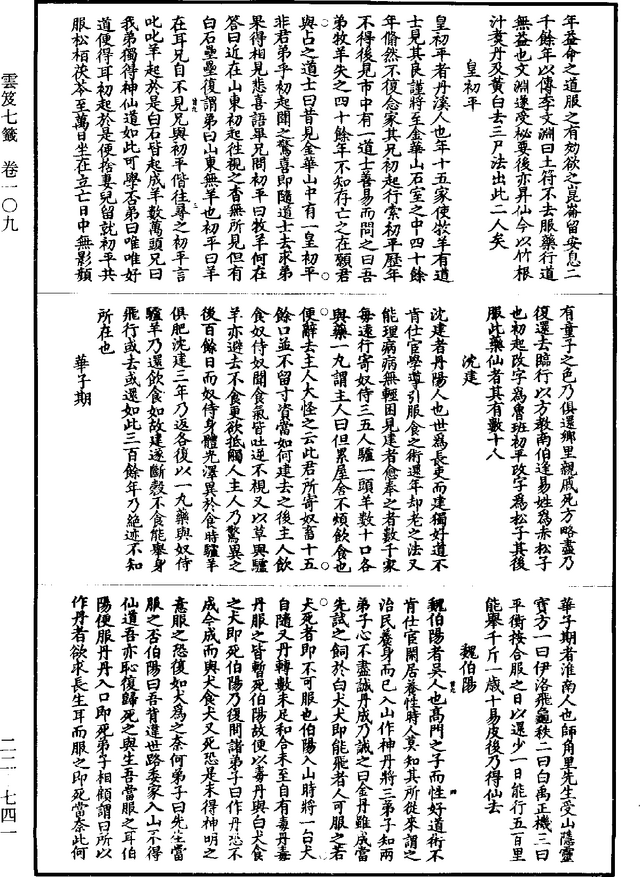 年益命之道服之有効欲之崑崙留安息二
千餘年以傳李文淵曰土符不去服藥行道
無益也文淵遂受秘要後亦昇仙今以竹根
汁煑丹及黃白去三尸法出此二人矣
皇初平
皇初平者丹溪人也年十五家使牧羊有道
士見其良謹將至金華山石室之中四十餘
年翛然不復念家其兄初起行索初平歷年
不得後見市中有一道士善易而問之曰吾
弟牧羊失之四十餘年不知存亡之在願君
與占之道士曰昔見金華山中有一皇初平
非君弟乎初起聞之驚喜即隨道士去求弟
果得相見悲喜語畢兄問初平曰牧羊何在
答曰近在山東初起往視之杳無所見但有
白石壘壘復謂弟曰山東無羊也初平曰羊
在耳兄自不見兄與初平偕往尋之初平言
叱叱羊起於是白石皆起成羊數萬頭兄曰
我弟獨得神仙道如此可學否弟曰唯唯好
道便得耳初起於是便捨妻兒留就初平共
服松栢茯苓至萬日坐在立亡日中無影顏
有童子之色乃俱還鄉里親戚死方略盡乃
復還去臨行以方教南伯逢易姓為赤松子
也初起改字為魯班初平改字為松子其後
服此藥仙者其有數十人
沈建
沈建者丹陽人也世為長吏而建獨好道不
肯仕宦學導引服食之術還年却老之法又
能理病病無輕困見建者愈奉之者數千家
每遠行寄奴侍三五人驢一頭羊數十口各
與藥一丸謂主人曰但累屋舍不煩飲食也
便辭去主人大怪之云此君所寄奴畜十五
餘口並不留寸資當如何建去之後主人飲
食奴侍奴聞食氣皆吐逆不視又以草與驢
羊亦避去不食更欲抵觸人主人乃驚異之
後百餘日而奴侍身體光澤異於食時驢羊
俱肥沈建三年乃返各復以一丸藥與奴侍
驢羊乃還飲食如故建遂斷穀不食能舉身
飛行或去或還如此三百餘年乃絕迹不知
所在也
華子期
華子期者淮南人也師角里先生受山隱靈
寶方一曰伊洛飛龜秩二曰白禹正機三曰
平衡按合服之日以還少一日能行五百里
能舉千斤一歲十易皮後乃得仙去
魏伯陽
魏伯陽者吳人也高門之子而性好道術不
肯仕宦閑居養性時人莫知其所從來謂之
治民養身而已入山作神丹將三弟子知兩
弟子心不盡誠丹成乃誡之曰金丹雖成當
先試之飼於白犬犬即能飛者人可服之若
犬死者即不可服也伯陽入山時將一白犬
自隨又丹轉數未足和合未至自有毒丹毒
丹服之皆暫死伯陽故便以毒丹與白犬食
之犬即死伯陽乃復問諸弟子曰作丹恐不
成今成而與犬食犬又死恐是未得神明之
意服之恐復如犬為之奈何弟子曰先生當
服之否伯陽曰吾背違世路委家入山不得
仙道吾亦恥復歸死之與生吾當服之耳伯
陽便服丹丹入口即死弟子相顧謂曰所以
作丹者欲求長生耳而服之即死當奈此何
雲笈七籤 卷一〇九
二二·七四一